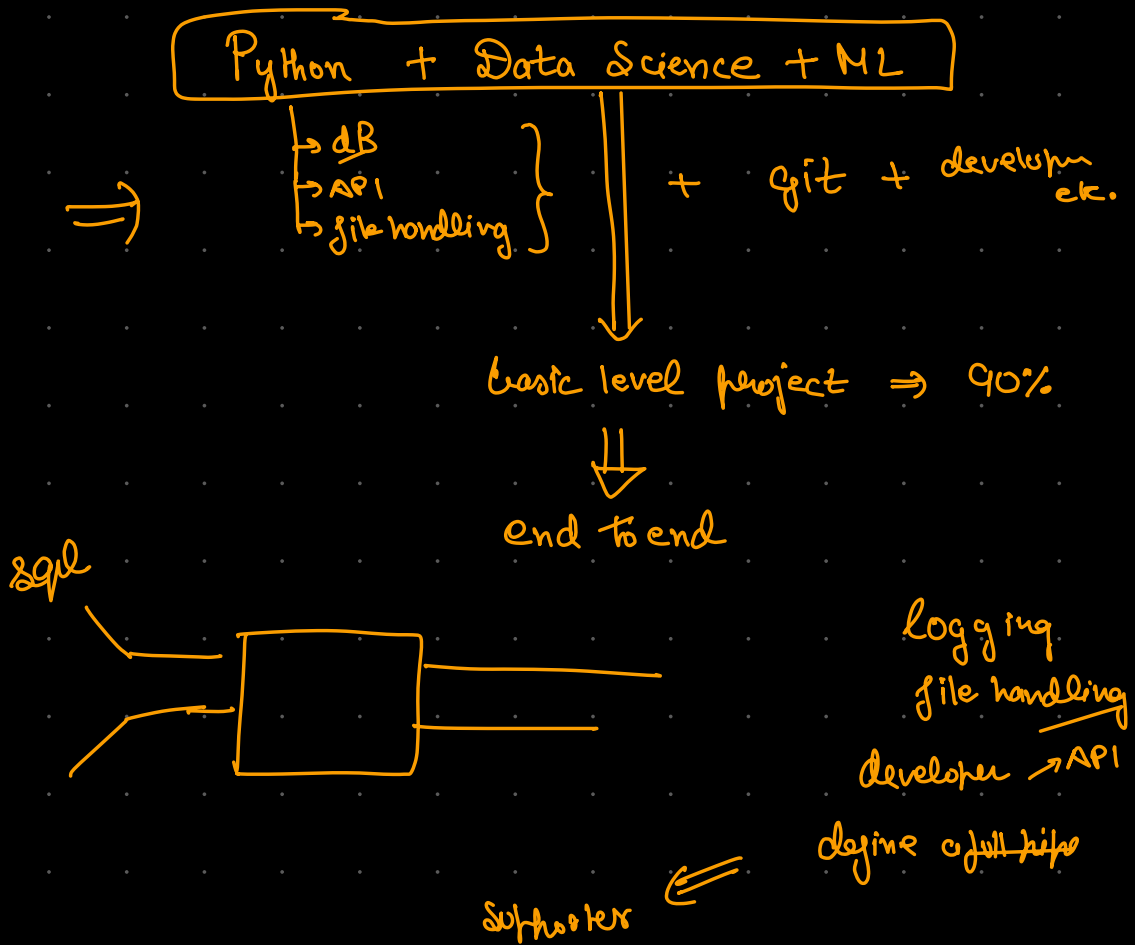 Python + Data Science + ML
→ dB
→ API
→ file handling
+ git + developer
etc.
⇒
basic level project ⇒ 90%
end to end
sql
logging
file handling
developer → API
define a full pipe
supporter